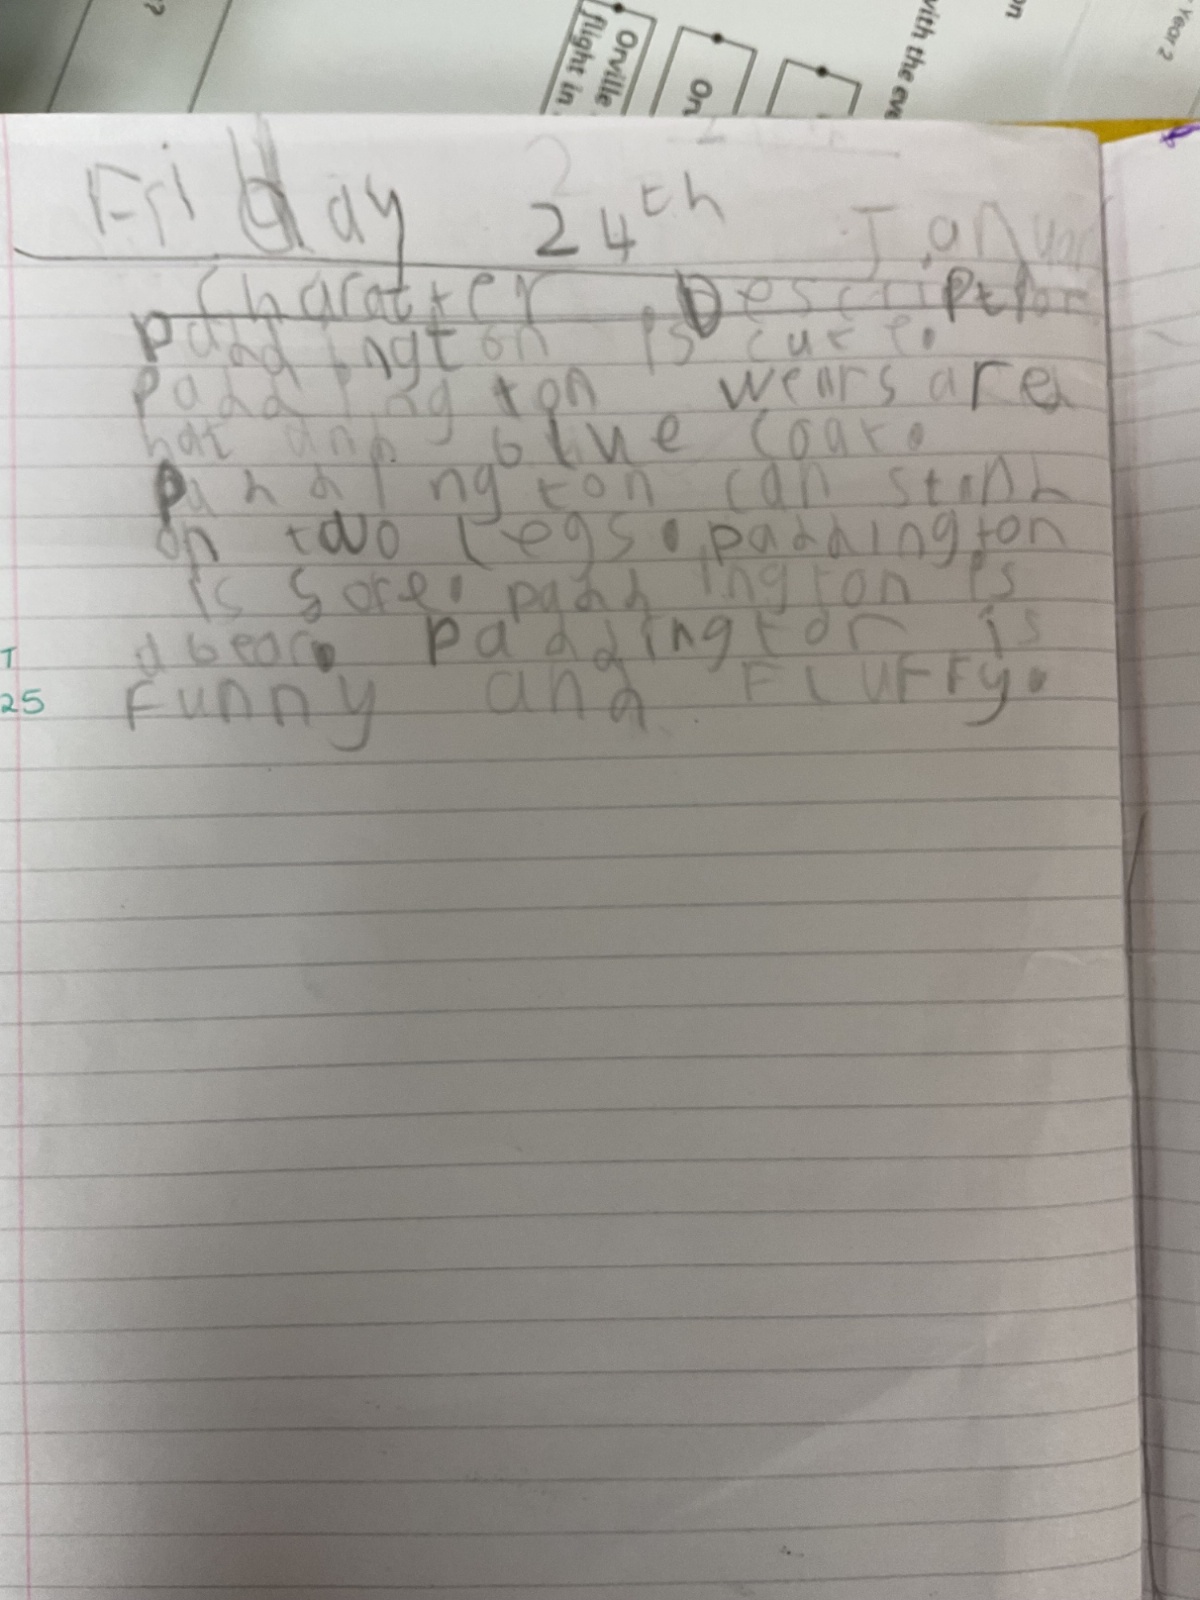 ? Year 2
on
with the eve
On
Orville
flight in
Friday 24th Januar
Charatter Description
Paddington is cute.
Paddington wears a red
hat and blue coat.
Paddington can stand
on two legs. paddington
is sore. paddington is
a bear. Paddington is
Funny and FluFFy.
T
25